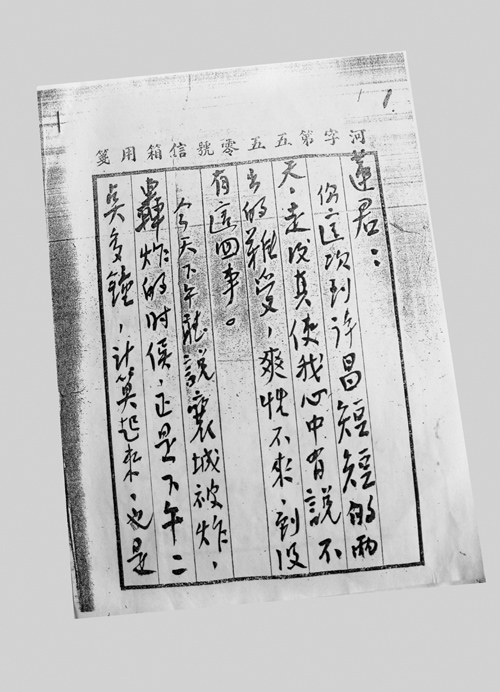 1.
河字第五五零號信箱用箋
蓮君：
你這次到許昌短短的兩
天，走后真使我心中有說不
出的難受，爽性不來，到没
有這回事。
今天下午聽說襄城被炸，
轟炸的时候，正是下午二
點多鐘，计算起来，也是